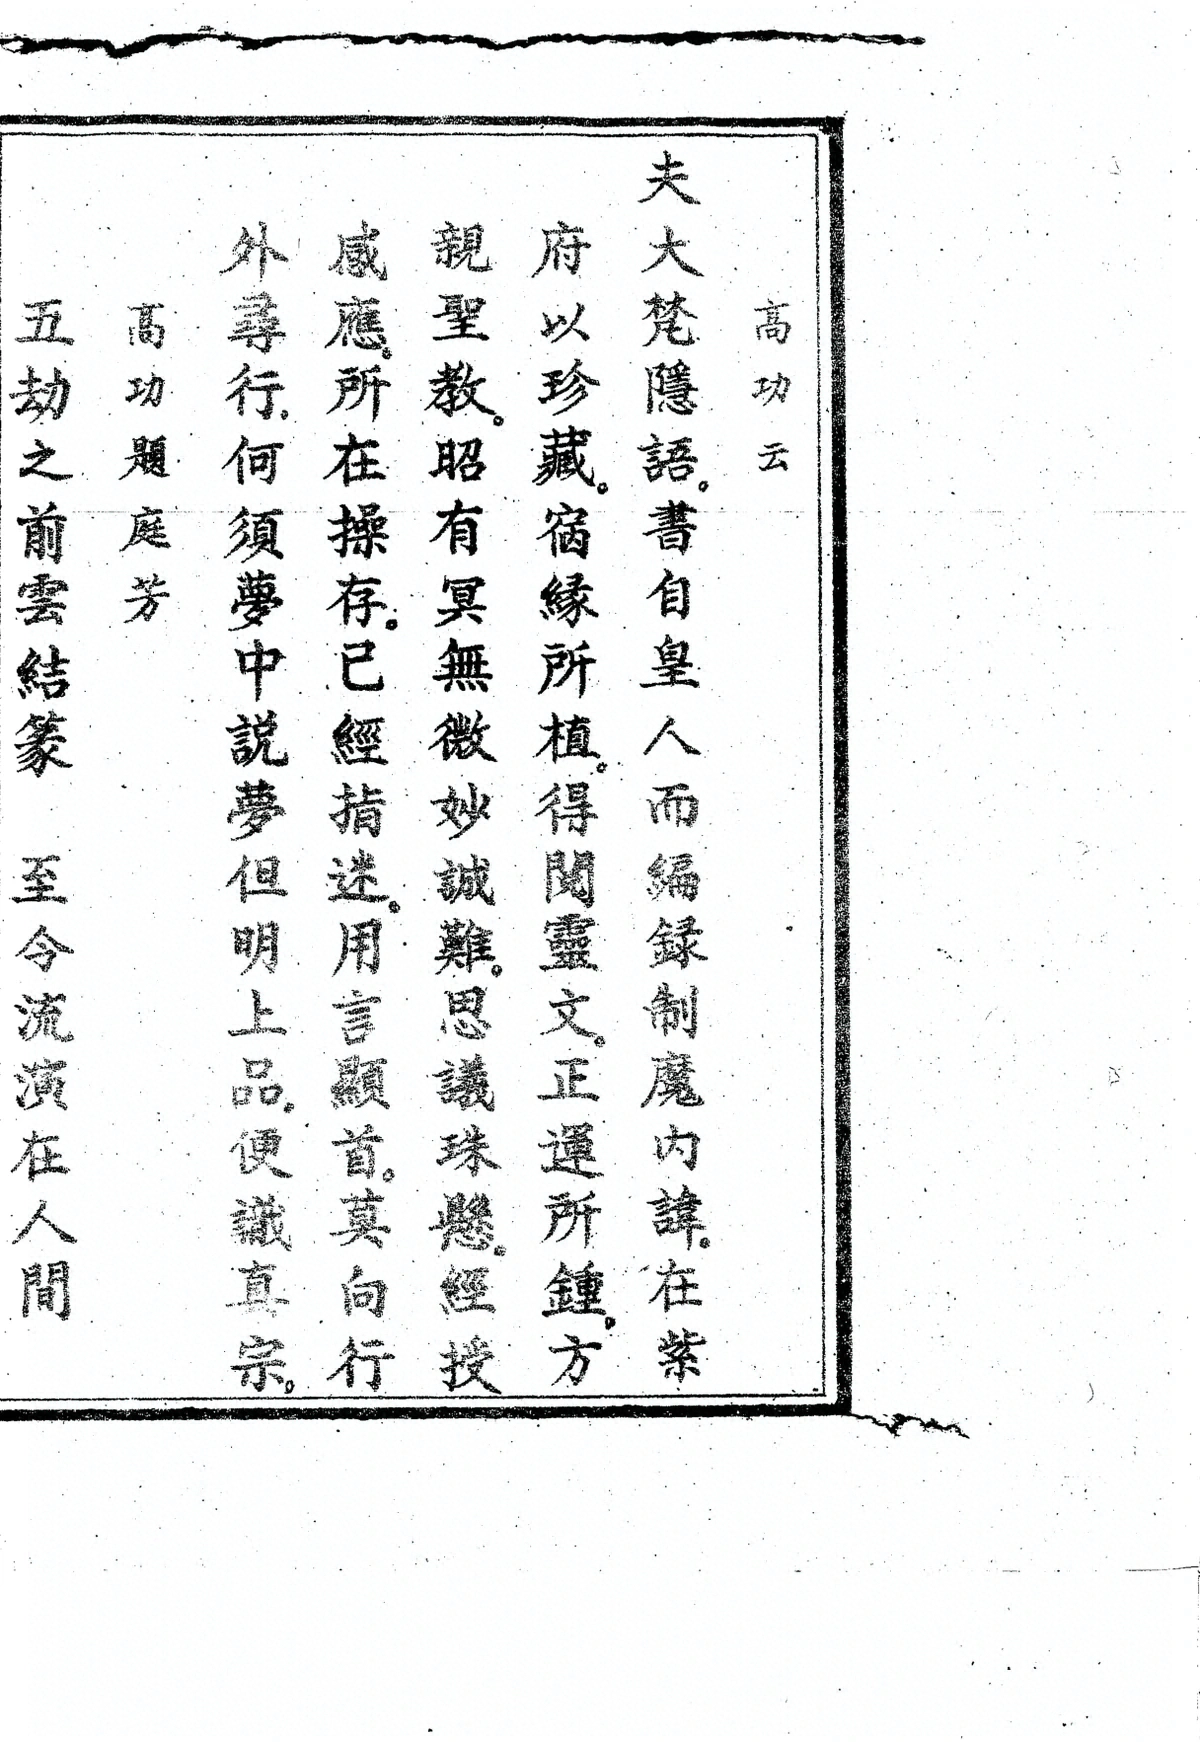 高功云
夫大梵隱語。書自皇人而編録制魔內諱。在紫
府以珍藏。宿緣所植。得聞靈文。正運所鍾。方
親聖教。昭有冥無微妙誠難。思議珠懸。經授
感應。所在操存。已經指迷。用言顯首。莫向行
外尋行。何須夢中説夢但明上品。便識真宗。
高功題庭芳
五劫之前雲結篆 至今流演在人間